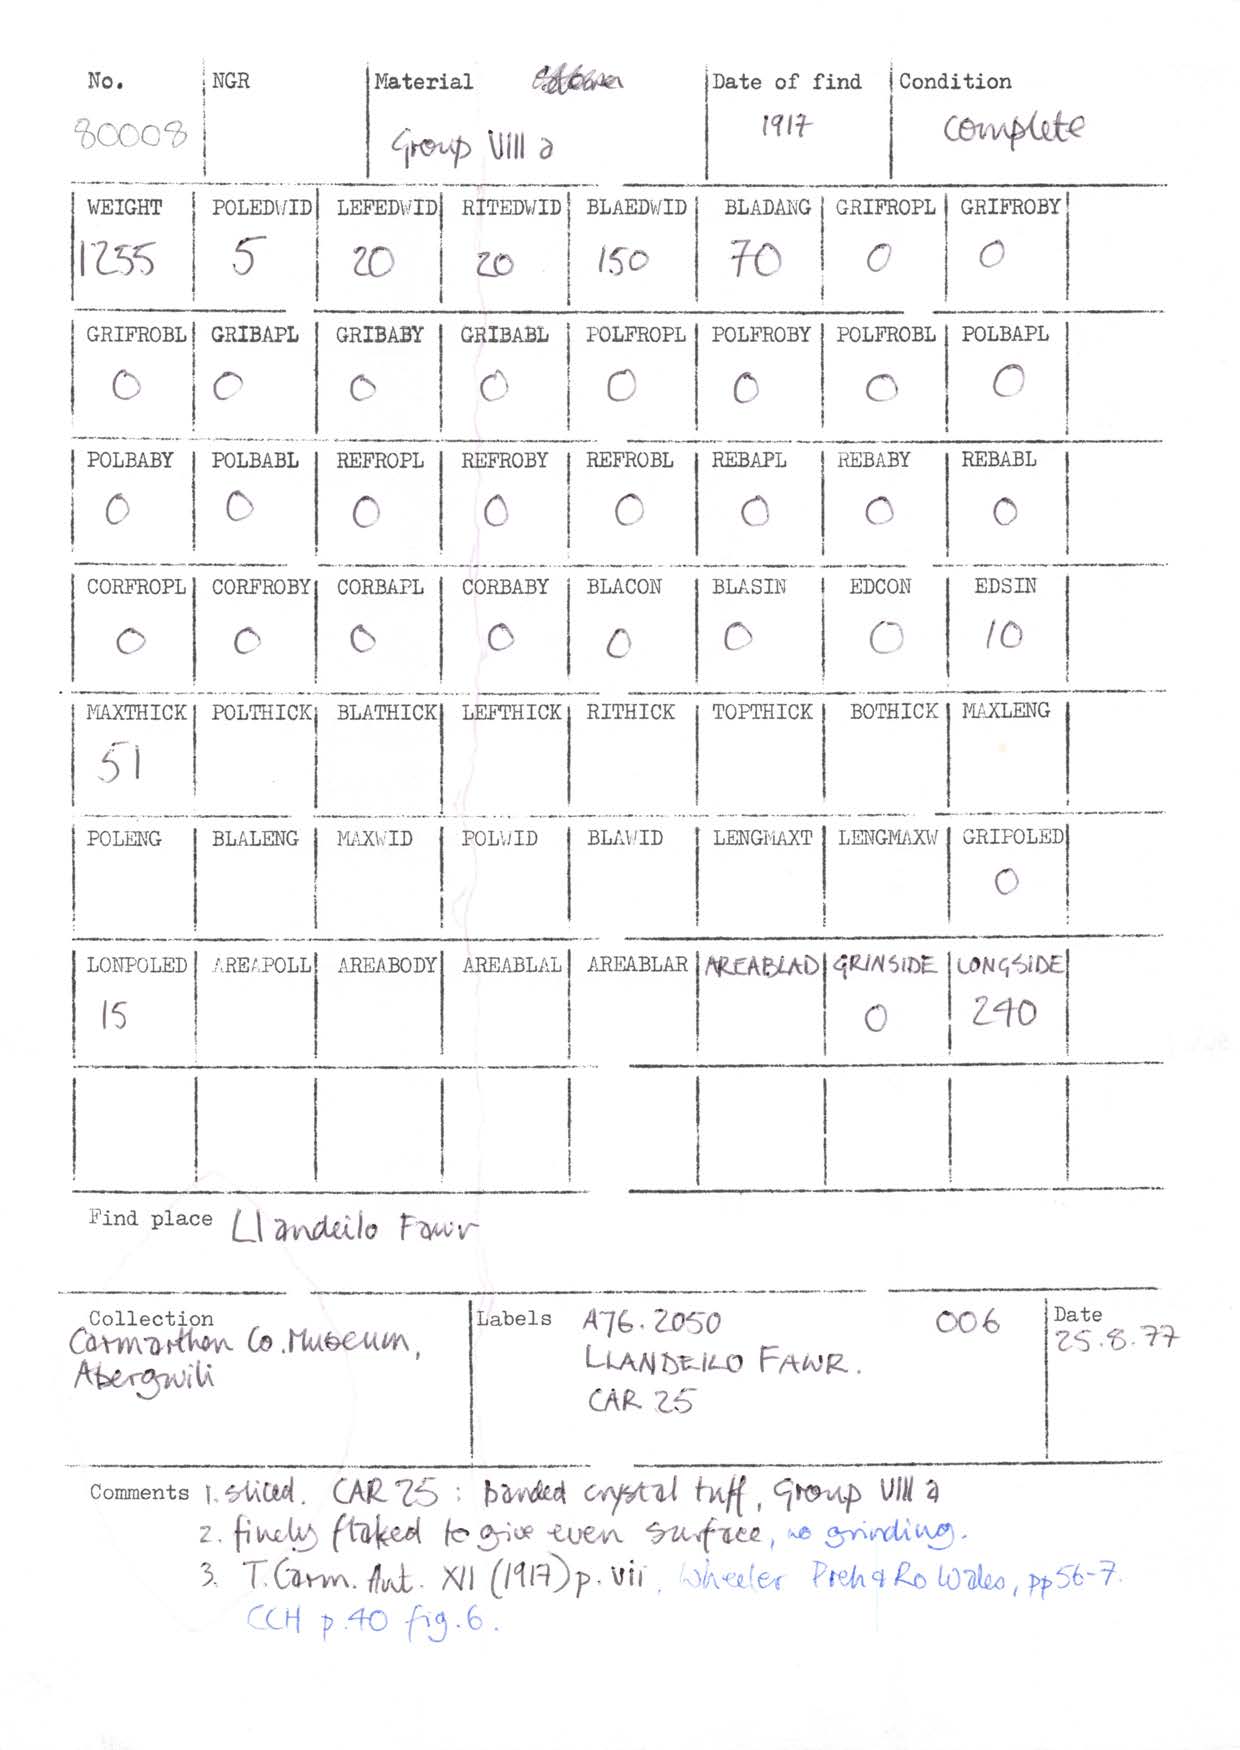 No. NGR Material Date of find Condition
80008 Group VIII a 1917 complete
WEIGHT POLEDWID LEFEDWID RITEDWID BLAEDWID BLADANG GRIFROPL GRIFROBY
1255 5 20 20 150 70 0 0
GRIFROBL GRIBAPL GRIBABY GRIBABL POLFROPL POLFROBY POLFROBL POLBAPL
0 0 0 0 0 0 0 0
POLBABY POLBABL REFROPL REFROBY REFROBL REBAPL REBABY REBABL
0 0 0 0 0 0 0 0
CORFROPL CORFROBY CORBAPL CORBABY BLACON BLASIN EDCON EDSIN
0 0 0 0 0 0 0 10
MAXTHICK POLTHICK BLATHICK LEFTHICK RITHICK TOPTHICK BOTHICK MAXLENG
51
POLENG BLALENG MAXWID POLWID BLAWID LENGMAXT LENGMAXW GRIPOLED
0
LONPOLED AREAPOLL AREABODY AREABLAL AREABLAR AREABLAD GRINSIDE LONGSIDE
15 0 240
Find place Llandeilo Fawr
Collection Labels A76.2050 006 Date
Carmarthen Co. Museum, LLANDEILO FAWR. 25.8.77
Abergwili CAR 25
Comments 1. sliced. CAR 25 : banded crystal tuff, Group VIII a
2. finely flaked to give even surface, no grinding.
3. T. Carm. Ant. XII (1917) p. vii, Wheeler Preh & Ro Wales, pp 56-7.
CCH p.40 fig.6.